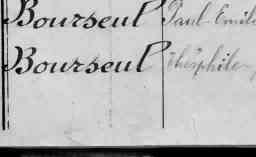 Bourseul Paul Emile
Bourseul Théophile